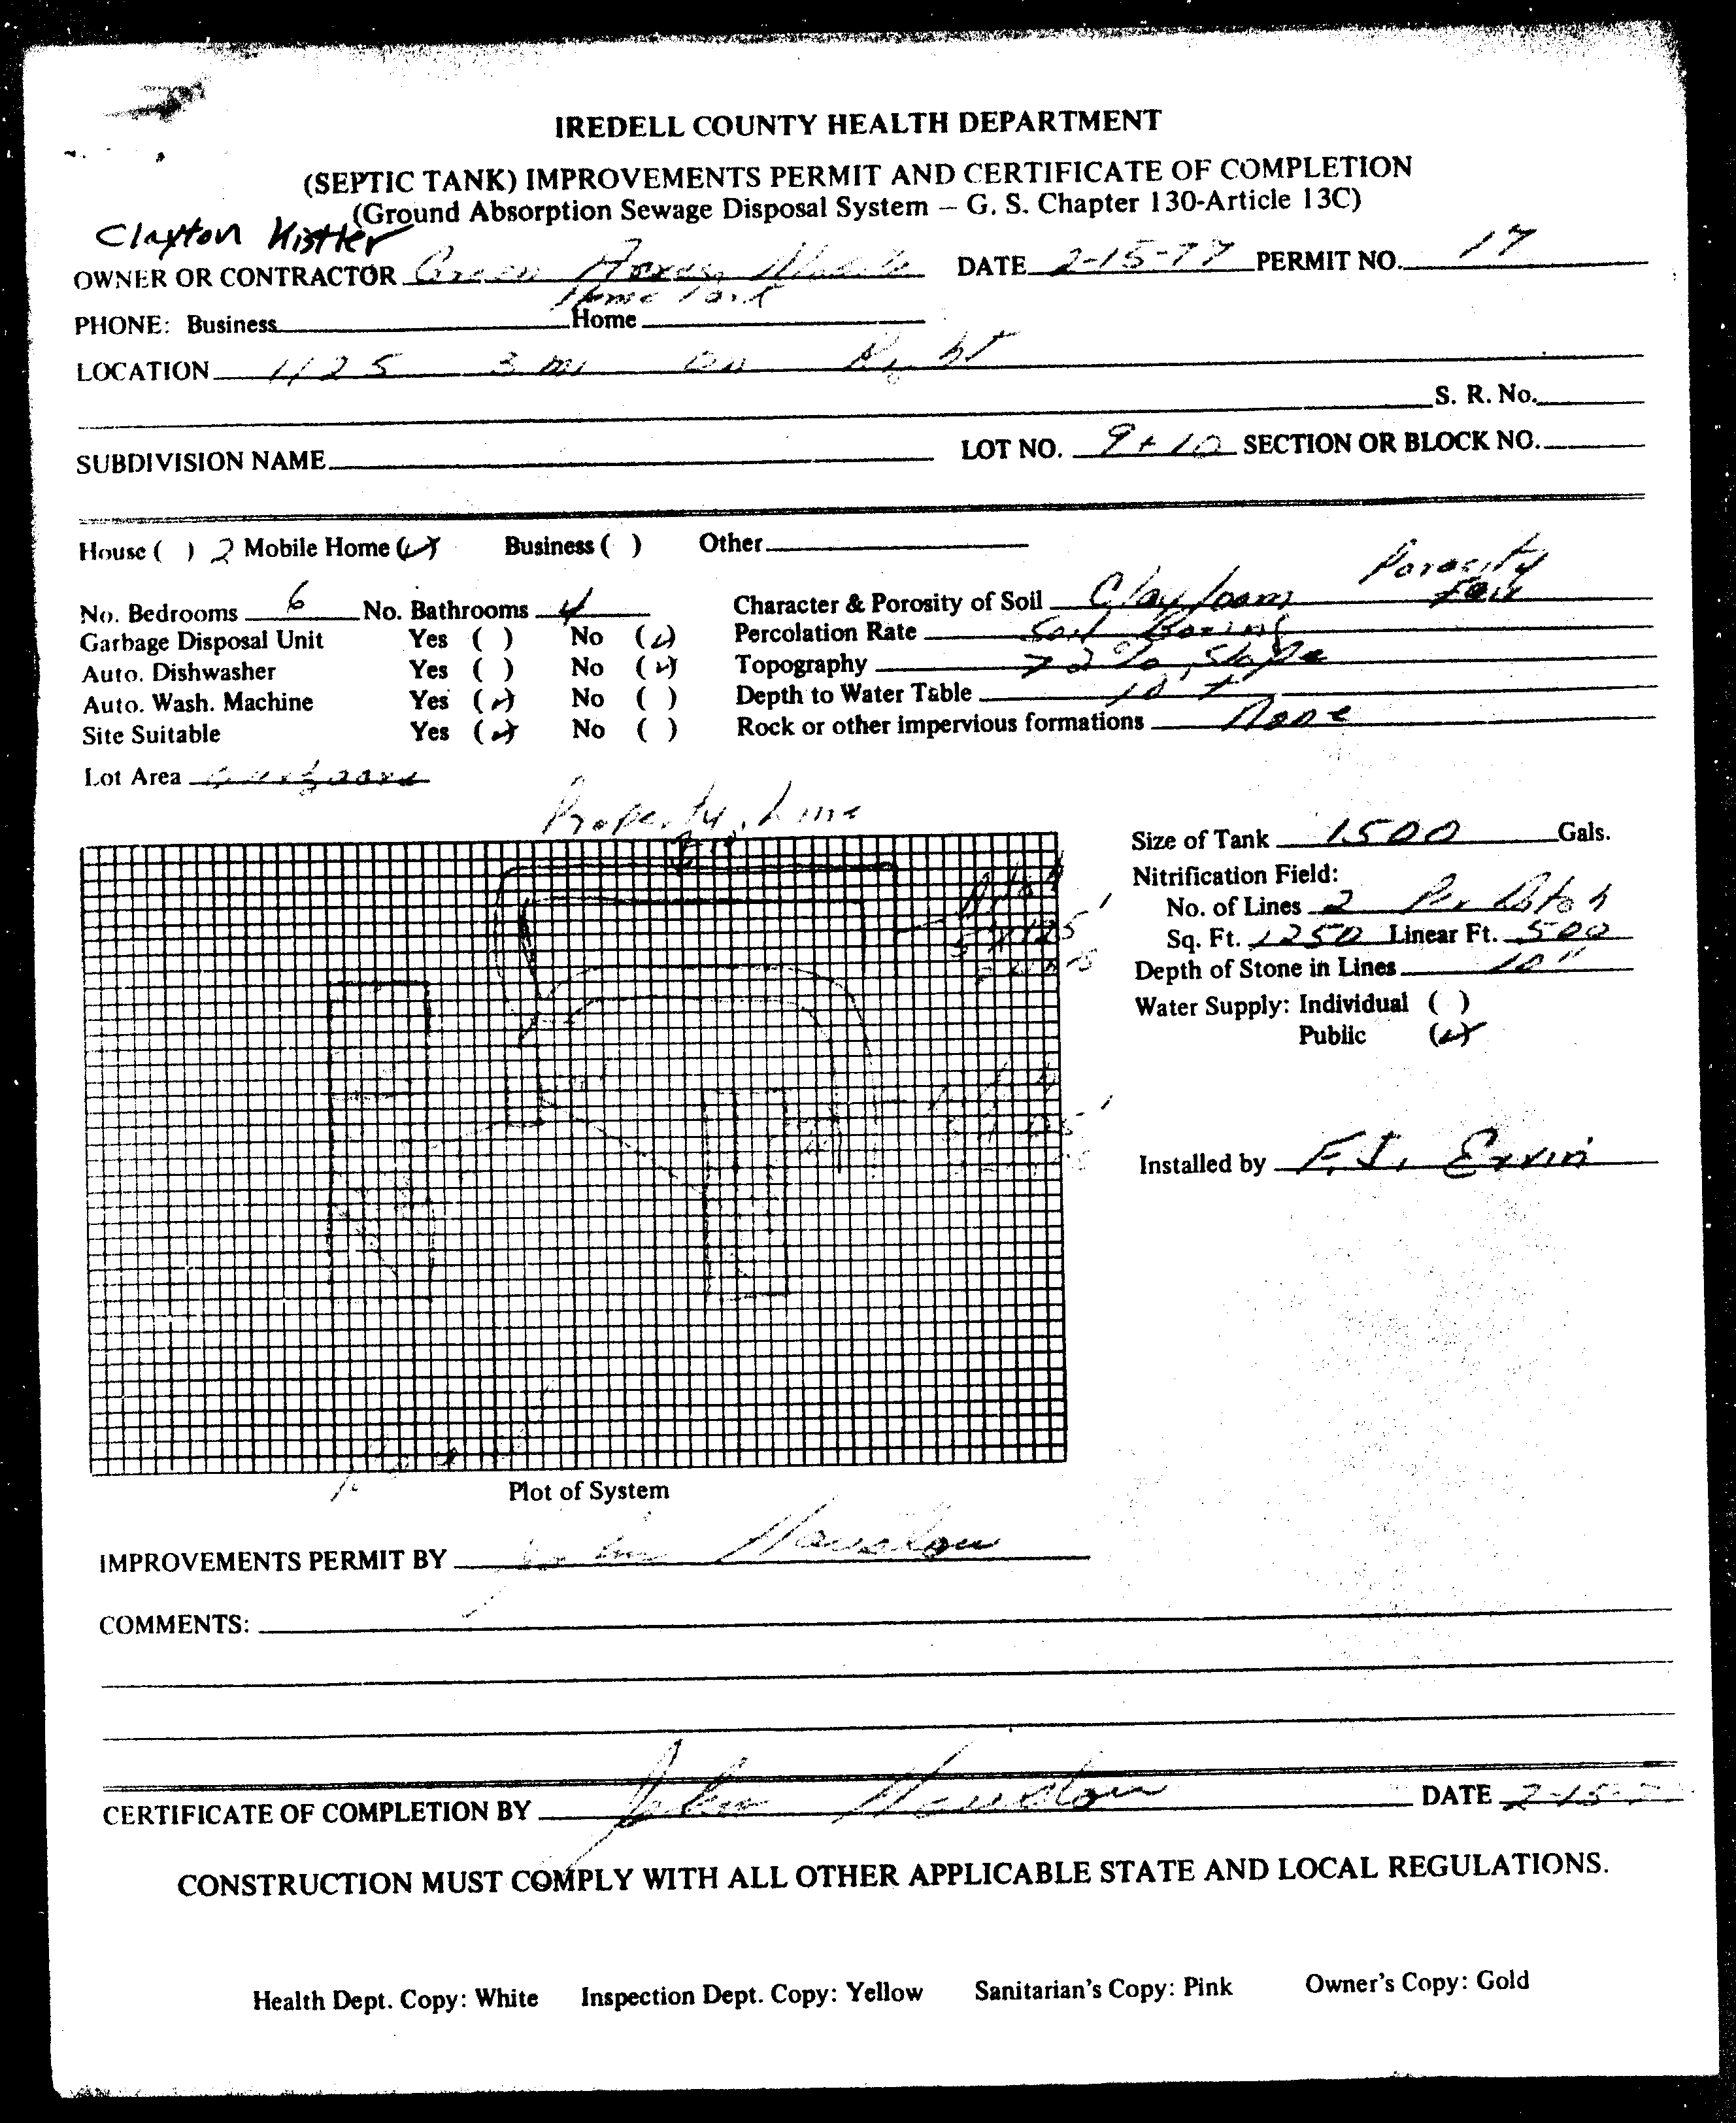 IREDELL COUNTY HEALTH DEPARTMENT
(SEPTIC TANK) IMPROVEMENTS PERMIT AND CERTIFICATE OF COMPLETION
(Ground Absorption Sewage Disposal System – G. S. Chapter 130-Article 13C)
Clayton Kistler
OWNER OR CONTRACTOR Green Acres Mobile DATE 2-15-77 PERMIT NO. 17
Home Park
PHONE: Business Home
LOCATION 1125 3 mi on Right
S. R. No.
SUBDIVISION NAME LOT NO. 9+10 SECTION OR BLOCK NO.
House ( ) 2 Mobile Home (✓) Business ( ) Other
Porosity
No. Bedrooms 6 No. Bathrooms 4 Character & Porosity of Soil Clay loam Fair
Garbage Disposal Unit Yes ( ) No (✓) Percolation Rate Soil Boring
Auto. Dishwasher Yes ( ) No (✓) Topography >2%, Slope
Auto. Wash. Machine Yes (✓) No ( ) Depth to Water Table 10 +
Site Suitable Yes (✓) No ( ) Rock or other impervious formations None
Lot Area
Property Line
Size of Tank 1500 Gals.
Nitrification Field:
No. of Lines 2 Per Ditch
Sq. Ft. 1250 Linear Ft. 500
Depth of Stone in Lines 10"
Water Supply: Individual ( )
Public (✓)
Installed by F.J. Ervin
Plot of System
IMPROVEMENTS PERMIT BY John
COMMENTS:
CERTIFICATE OF COMPLETION BY John DATE 2-15-7
CONSTRUCTION MUST COMPLY WITH ALL OTHER APPLICABLE STATE AND LOCAL REGULATIONS.
Health Dept. Copy: White Inspection Dept. Copy: Yellow Sanitarian's Copy: Pink Owner's Copy: Gold